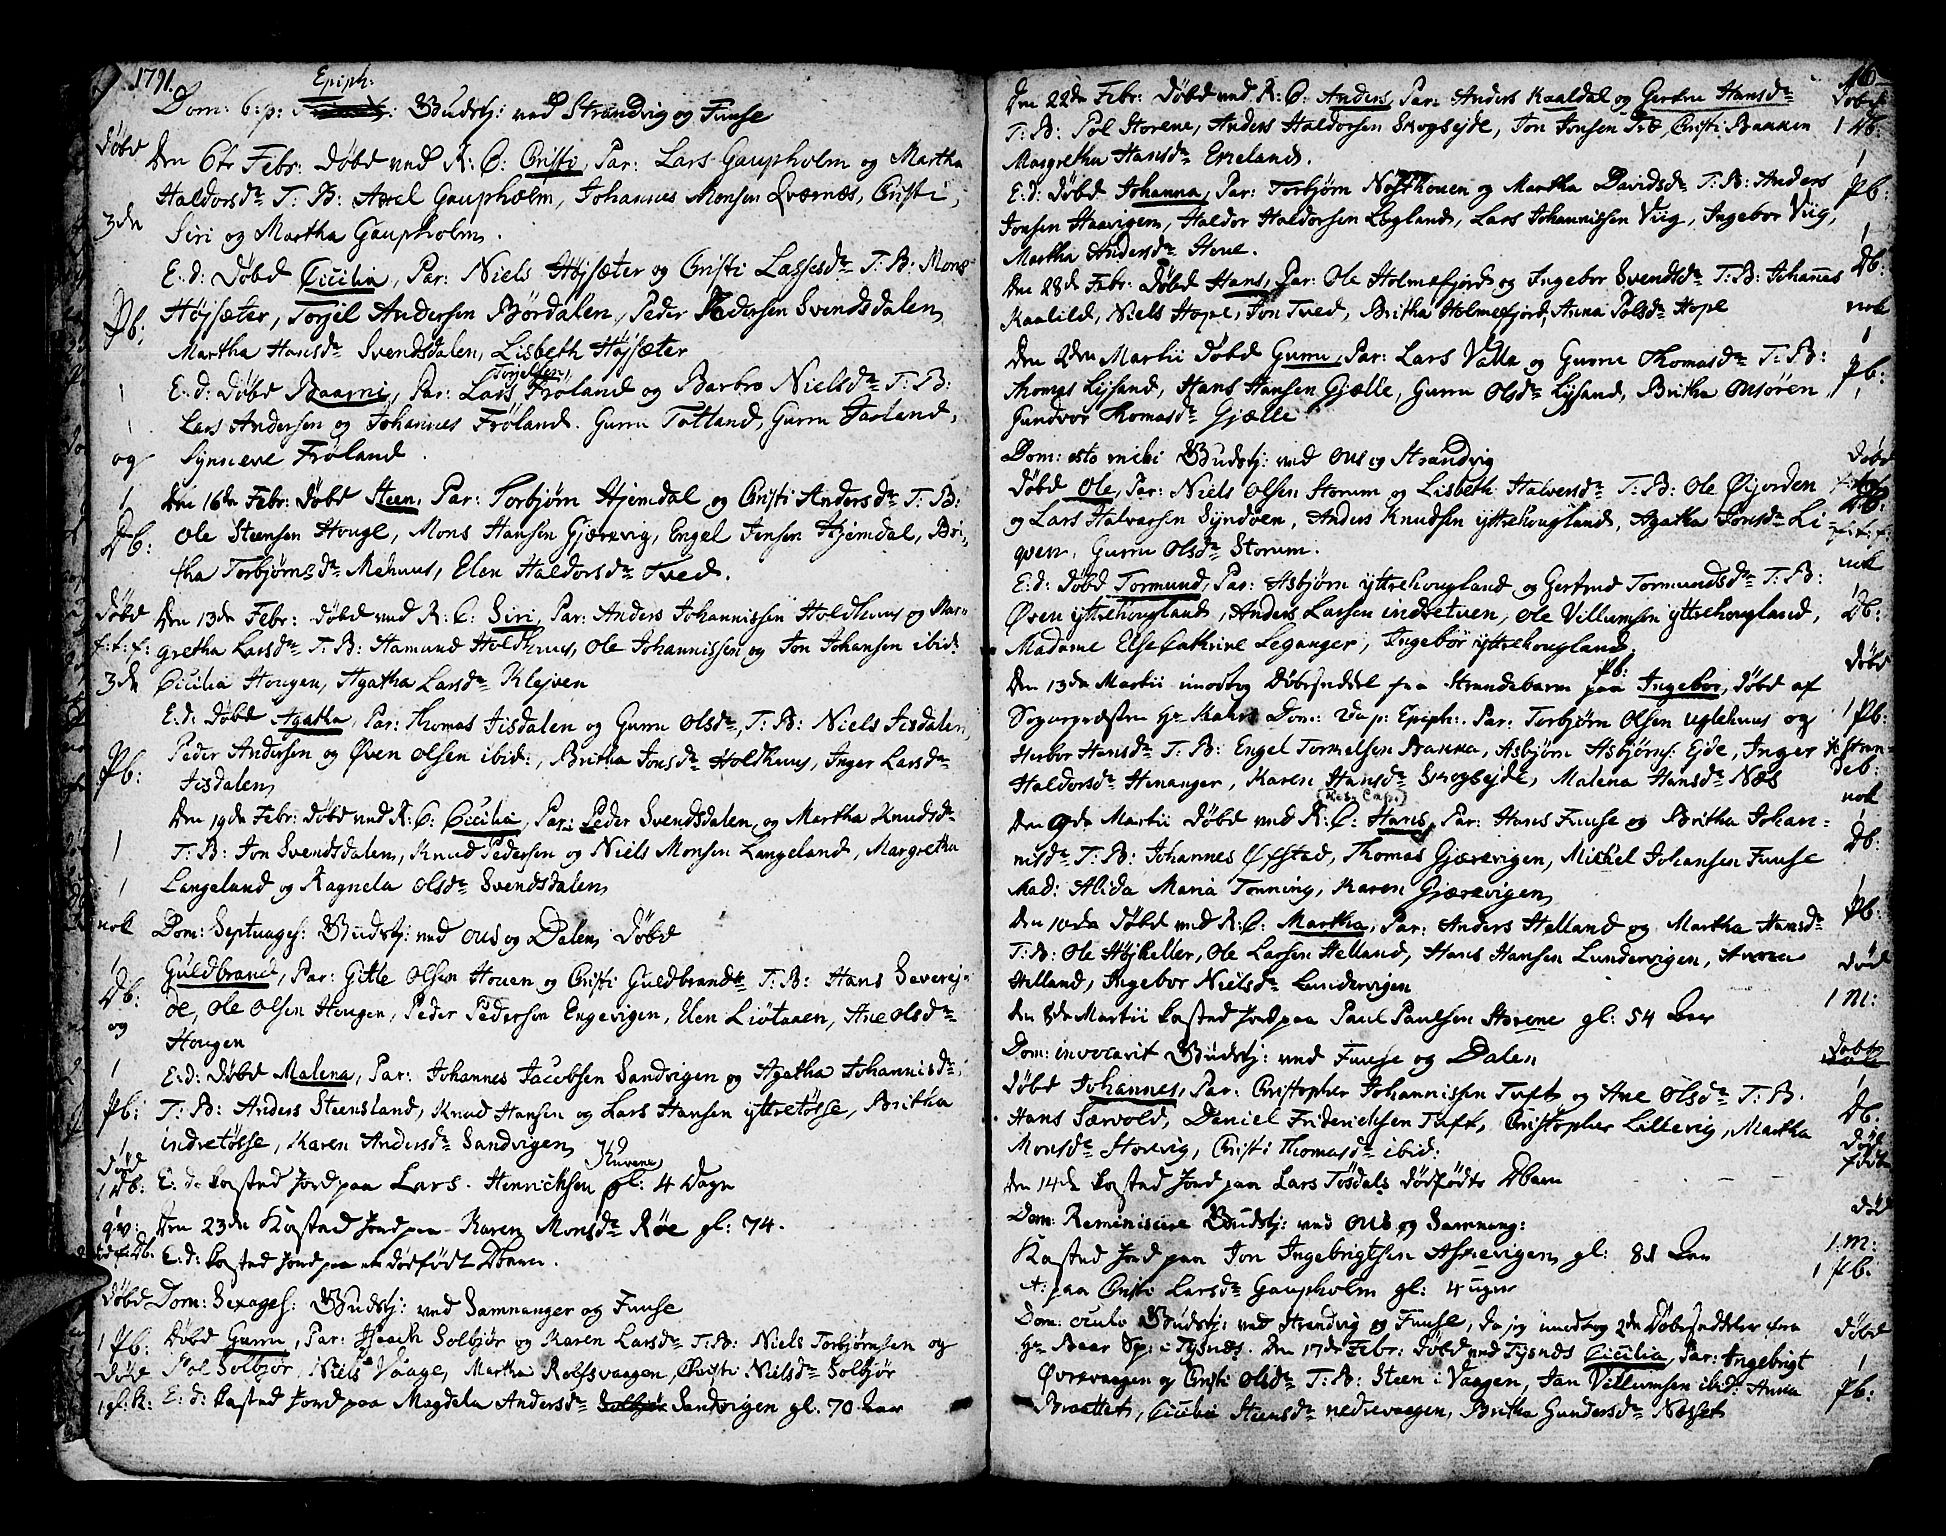 1791.
Epiph:
Dom: 6: p: Budstj: ved Strandvig og Fuuse
Døbd
Den 6te Febr: Døbd ved K: C: Cristi, Par: Lars Gaupholm og Martha
Haldorsdr T: B: Axel Gaupholm, Johannes Monsen Qvernæs, Cristi,
3de
Siri og Martha Gaupholm.
E: d: Døbd Cicilia, Par: Niels Højsæter og Cristi Lassesdr T: B: Mons
Pb:
Højsæter, Torjel Andersen Bördalen, Peder Pedersen Svendsdalen,
Martha Hansdr Svendsdalen, Lisbeth Højsæter
Torjelsen
1
E: d: Døbd Baarni, Par: Lars Fröland og Barbro Nielsdr T: B:
1
Lars Andersen og Johannes Fröland. Guru Totland, Guru Jarland,
og
Synneve Fröland.
1
Den 16de Febr: Døbd Steen, Par: Torbjørn Hjemdal og Cristi Andersdr T: B:
Db:
Ole Steensen Hougl, Mons Hansen Gjærevig, Engel Jensen Hjemdal, Bri-
tha Torbjørnsdr Mehuus, Elen Haldorsdr Tved.
Døbd
Den 13de Febr: Døbd ved K: C: Siri, Par: Anders Johannissen Holdhuus og Mar-
f: f: f:
gretha Larsdr T: B: Hamund Holdhuus, Ole Johannissen og Jon Johansen ibid:
3de
Cicilia Hougen, Agatha Larsdr Klejven
E: d: Døbd Agatha, Par: Thomas Jisdalen og Guru Olsdr, T: B: Niels Jisdalen,
Pb:
Peder Andersen og Øven Olsen ibid:, Britha Jonsdr Holdhuus, Inger Larsdr
Jisdalen,
Den 19de Febr: Døbd ved K: C: Cicilia, Par: Peder Svendsdalen, og Martha Knudsdr
1
T: B: Jon Svendsdalen, Knud Pedersen og Niels Monsen Langeland, Margretha
1
Langeland og Ragnela Olsdr Svendsdalen
nok
Dom: Septuages: Budstj: ved Ous og Dalen, Døbd
1
Guldbrand, Par: Gitle Olsen Houen og Cristi Guldbrandsdr T: B: Hans Severej-
Db:
de, Ole Olsen Hougen, Peder Pedersen Engevigen, Elen Liötaaen, Ane Olsdr
og
Hougen
1
E: d: Døbd Malena, Par: Johannes Jacobsen Sandvigen og Agatha Johannisdr
Pb:
T: B: Anders Steensland, Knud Hansen og Lars Hansen yttretösse, Britha
indretösse, Karen Andersdr Sandvigen,
1
død
1 Db:
E: d: kasted Jord paa Lars Henrichsen gl: 4 Dage
1 qv:
Den 23de Kasted Jord paa Karen Monsdr Røe gl: 74.
E: d: kasted Jord paa et dödfödt Dbarn.
Døbd
Dom: Sexages: Budstj: ved Samnanger og Fuuse
1 Pb:
Døbd Guru, Par: Isaach Solbjör og Karen Larsdr T: B: Niels Torbjørnsen og
Død
Pol Solbjør, Niels Vaage, Martha Rolfsvaagen, Christi Nielsdr Solbjør
1 gl: K:
E: d: kasted Jord paa Magdela Andersdr Sandvigen gl. 70 Aar
Den 22de Febr: Døbd ved K: C: Anders, Par: Anders Kaaldal og Gertru Hansdr
Døbd
T: B: Pol Storene, Anders Haldorsen Skogsejde, Jon Jonsen Trö, Cristi Bakken
1 Db:
Margretha Hansdr Eekeland.
1
E: d: Døbd Johanna, Par: Torbjørn Nordhouen og Martha Davidsdr T: B: Anders
Pb:
Jonsen Haavigen, Haldor Haldorsen Legland, Lars Johannissen Viig, Ingebor Viig,
1
Martha Andersdr Hove.
Db:
Den 28de Febr: Døbd Hans, Par: Ole Holmefjord og Ingebor Svendsdr T: B: Johannes
Kaalild, Niels Hope, Jon Tved, Britha Holmefjord, Anna Polsdr Hope
nok
1
Den 2den Martii Døbd Guru, Par: Lars Valle og Guru Thomasdr T: B:
Pb:
Thomas Lysand, Hans Hansen Gjelle, Guru Olsdr Lysand, Britha Onsören,
Gundvor Thomasdr Gjælle
Dom: esto mihi Budstj: ved Ous og Strandvig
Døbd
Døbd Ole, Par: Niels Olsen Storum og Lisbeth Halversdr T: B: Ole Øijorden
Db:
og Lars Halvorsen Syndöen, Anders Knudsen yttrehougland, Agatha Jonsdr Li-
f: f: f:
qven, Guru Olsdr Storum.
nok
E: d: Døbd Tormund, Par: Asbjørn yttrehougland og Gertrud Tormundsdr T: B:
1
Øven yttrehougland, Anders Larsen indretuen, Ole Villumsen yttrehougland,
Db:
Madame Else Cathrine Leganger, Ingebör yttrehougland.
Døbd
Den 13de Martii imodtog Døbeseddel fra Strandebarm paa Pb: Ingebor, døbd af
Sogerpræsten Hr Kahrs Dom: 2da p: Epiph: Par: Torbjørn Olsen uglehuus og
1 Pb:
Herbor Hansdr T: B: Engel Tormelsen Bakka, Asbjørn Asbjørns: Ejde, Inger
fr Stran-
deb:
Haldorsdr Henanger, Karen Hansdr Skogsejde, Malena Hansdr Næs
nok
Den 9de Martii Døbd ved K: C: Hans, Par: Hans Fuuse og Britha Johan-
1
nisdr T: B: Johannes Øfstad, Thomas Gjærevigen, Michel Johansen Fuuse
Db:
Mad: Alida Maria Tonning, Karen Gjærevigen,
1
Den 10de Døbd ved K: C: Martha, Par: Anders Helland og Martha Hansdr
Pb:
T: B: Ole Højkeller, Ole Larsen Helland, Hans Hansen Lundervigen, Anna
Død
Helland, Ingebor Nielsdr Lundervigen
1 M:
Den 8de Martii kasted Jord paa Paul Paulsen Storene gl: 54 Aar
Dom: invocavit Budstj: ved Fuuse og Dalen
Døbd
Døbd Johannes, Par: Christopher Johannissen Tuft og Ane Olsdr T: B.
1
Hans Særvold, Daniel Friderichsen Tuft, Christopher Lillevig, Martha
Db:
Monsdr Storvig, Cristi Thomasdr ibid:
Död
födt
Den 14de kasted Jord paa Lars Tösdals dödfödte Dbarn
Dom: Reminiscere Budstj: ved Ous og Samnang:
død
Kasted Jord paa Jon Ingebrigtsen Askevigen gl: 81 Aar
1 M:
1 Pb:
it: paa Cristi Larsdr Gaupholm gl: 4 uger
Dom: oculi Budstj: ved Strandvig og Fuuse, da jeg imodtog 2de Døbesedler fra
Døbd
Hr Baar Sp: i Tysnes. Den 17de Febr: Døbd ved Tysnes Cicilia, Par: Ingebrigt
1
Øvrevaagen og Cristi Olsdr T: B: Steen i Vaagen, Jan Villumsen ibid: Anna
Pb:
Braattet, Cicilia Steensdr nedrevaagen, Britha Gundersdr Nesset